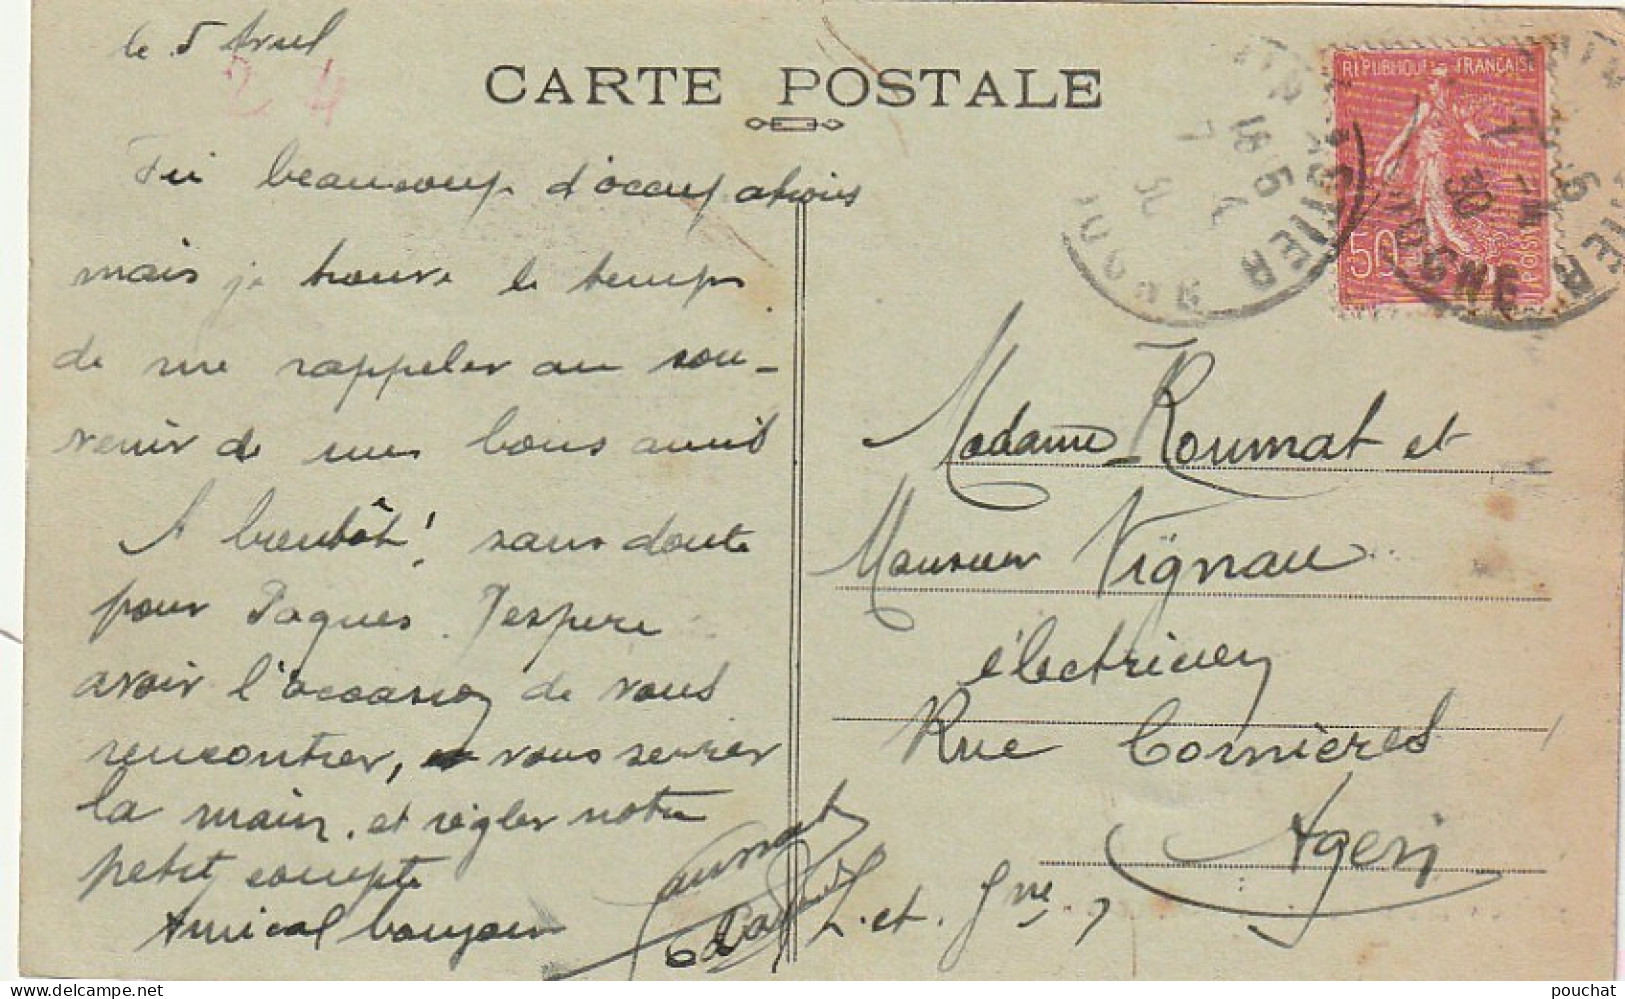 le 5 Avril
2 4
CARTE POSTALE
beaucoup d'occupations
mais je trouve le temps
de me rappeler au sou-
venir de mes bons amis
A bientôt! sans doute
pour Paques. J'espère
avoir l'occasion de vous
rencontrer, vous serrer
la main. et régler notre
petit compte
Amical bonjour
L. et Gne.
REPUBLIQUE FRANÇAISE
50
POSTES
Madame Roumat et
Monsieur Vignau
électricien
Rue Cornières
Agen
pouchat
delcampe.net